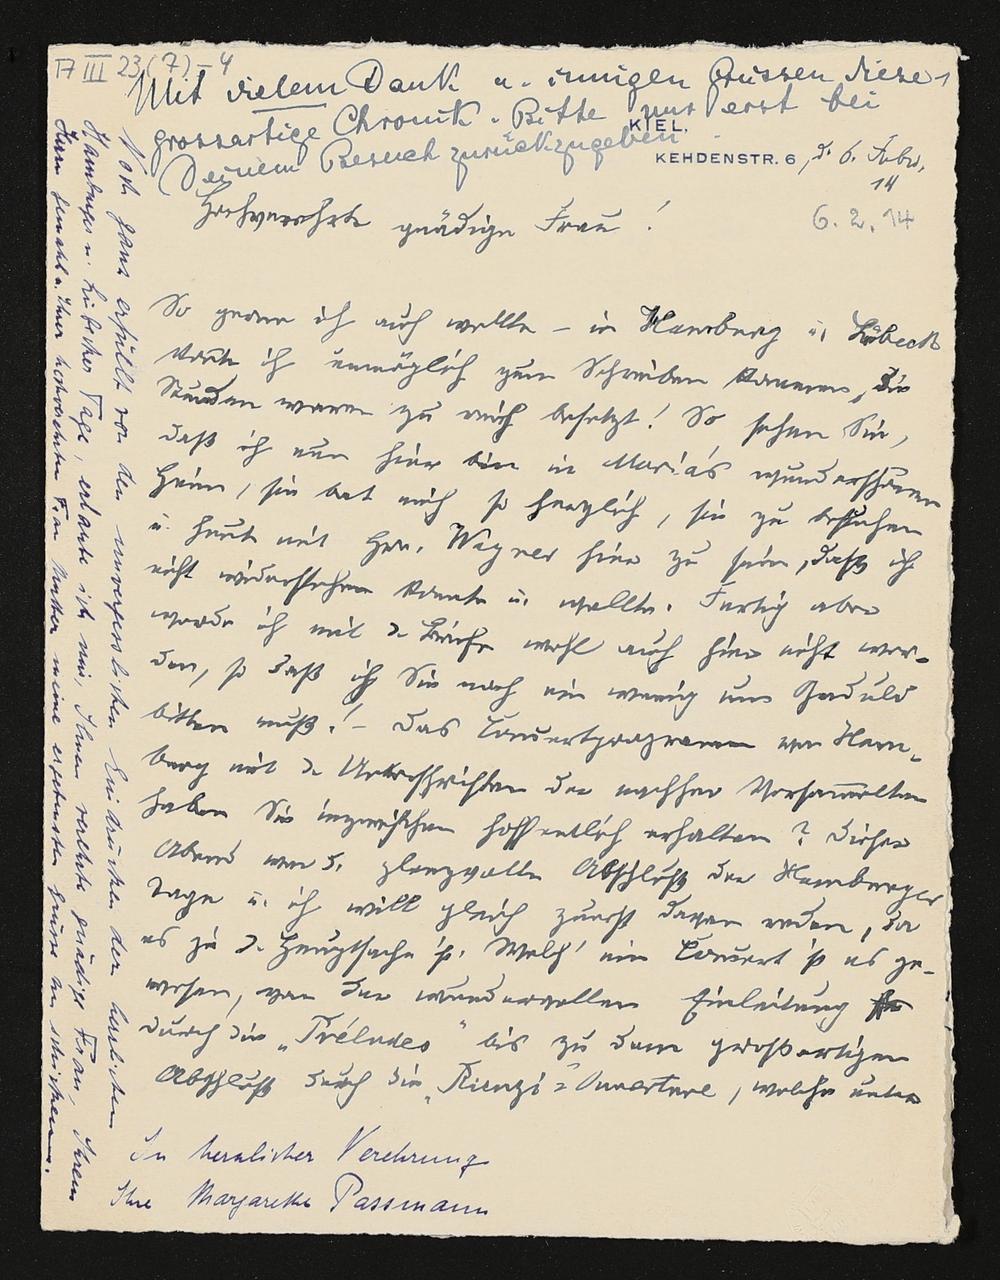 17 III 23(7)-4
Mit vielem Dank u. innigen Grüssen diese
grossartige Chronik. Bitte nur erst bei
Deinem Besuch zurückzugeben
KIEL,
KEHDENSTR. 6, d. 6. Febr.
14
6. 2. 14
Hochverehrte gnädige Frau!
So gerne ich auch wollte – in Hamburg u. Lübeck
konnte ich unmöglich zum Schreiben kommen, die
Stunden waren zu reich besetzt! So sehen Sie,
daß ich nun hier bin in Maria's wunderschönem
Heim, sie bat mich so herzlich, sie zu besuchen
u. heute mit Hrn. Wagner hier zu sein, daß ich
nicht widerstehen konnte u. wollte. Fertig aber
werde ich mit d. wohl auch hier nicht wer-
den, so daß ich Sie noch ein wenig um Geduld
bitten muß! – Das Concertprogramm von Ham-
burg mit d. Unterschriften der nachher Versammelten
haben Sie inzwischen hoffentlich erhalten? Dieser
Abend war d. glanzvolle Abschluß der Hamburger
Tage u. ich will gleich zuerst davon reden, da
es ja d. Hauptsache ist. Welch' ein Concert ist es ge-
wesen, von der wundervollen Einleitung
durch die „Préludes" bis zu dem großartigen
Abschluß durch die „Rienzi"-Ouverture, welche unter
Noch ganz erfüllt von den unvergesslichen Eindrücken der herrlichen
Hamburger u. Lübecker Tage, erlaube ich mir, Ihnen verehrte gnädige Frau, Ihrem
Herrn Gemahl u. Ihrer hochverehrten Frau Mutter meine ergebensten Grüsse zu schicken.
In herzlicher Verehrung
Ihre Margarethe Passmann